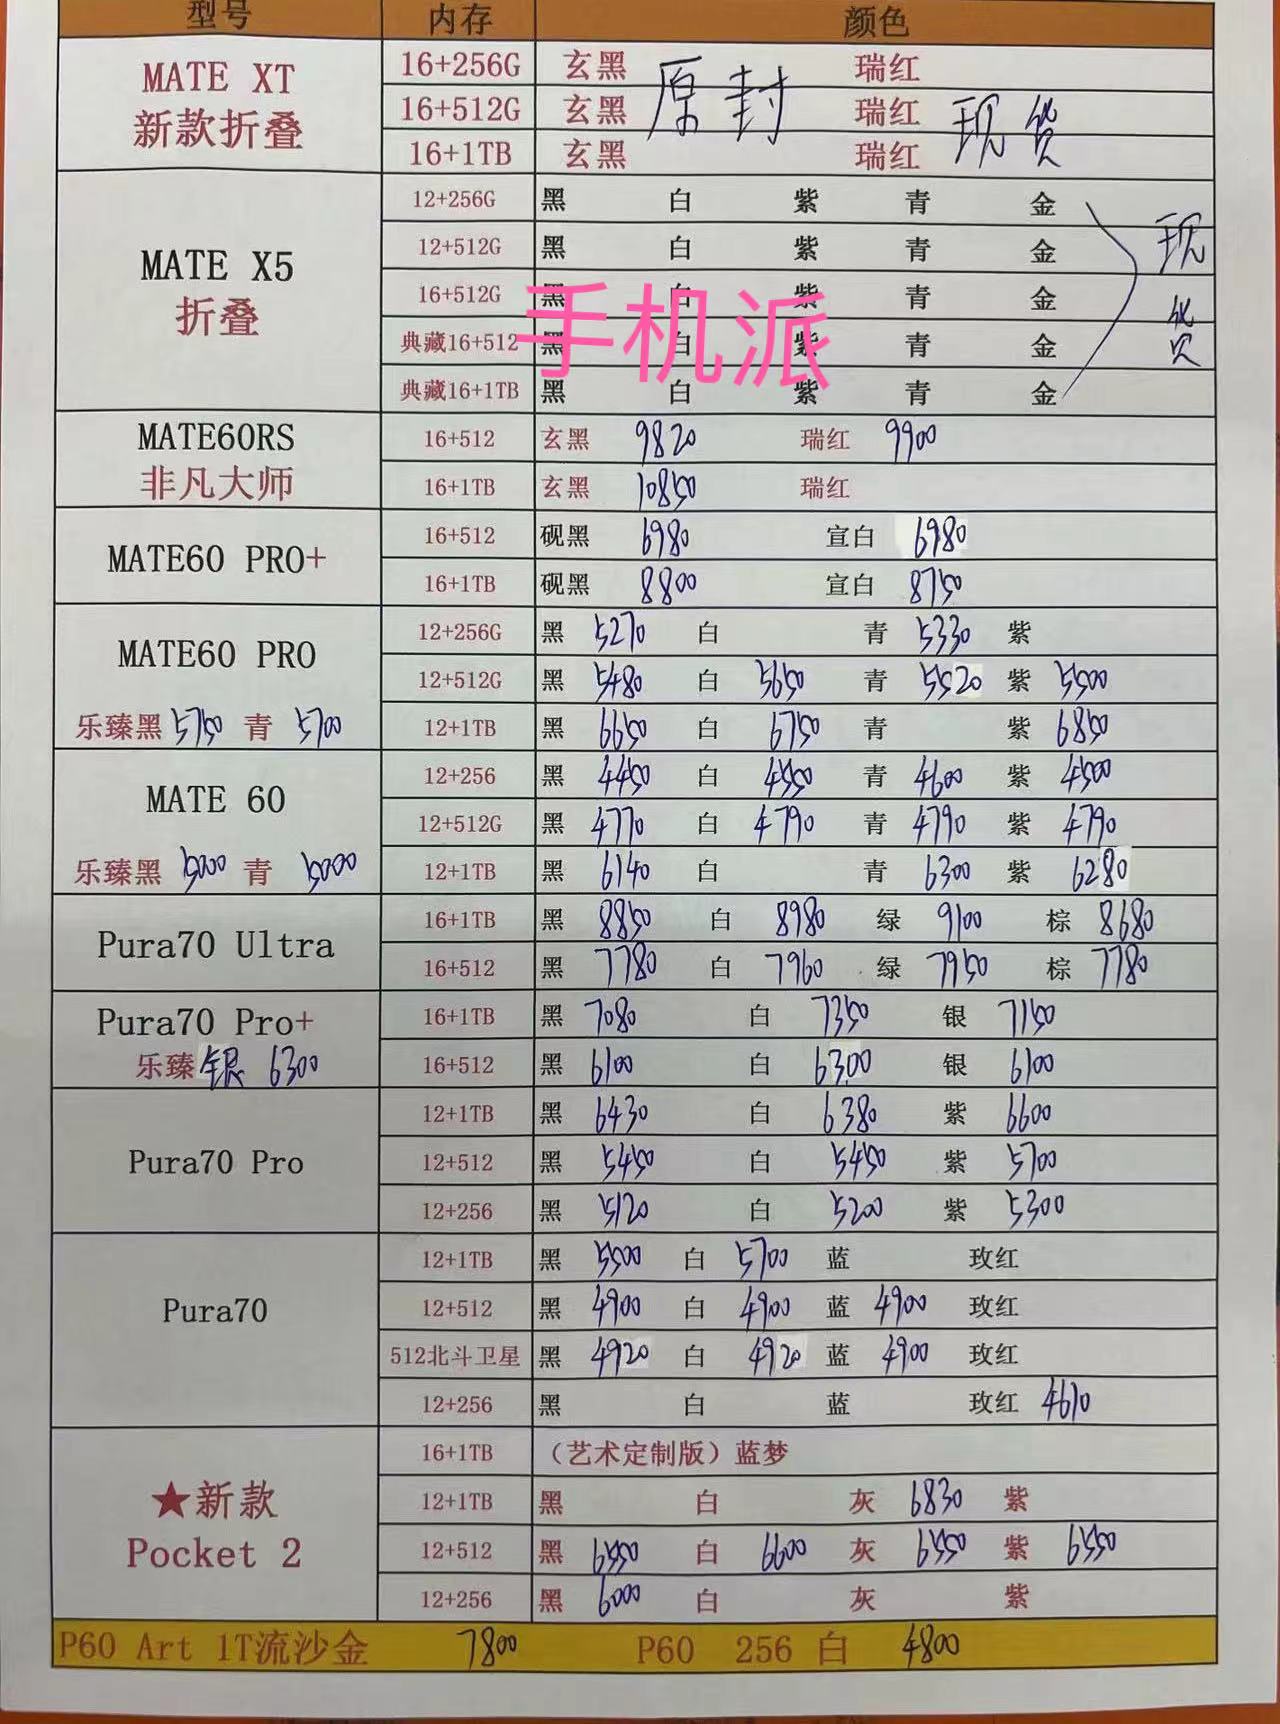 型号 内存 颜色
MATE XT 新款折叠
16+256G 玄黑 瑞红
16+512G 玄黑 瑞红
16+1TB 玄黑 瑞红
原封 现货
MATE X5 折叠
12+256G 黑 白 紫 青 金
12+512G 黑 白 紫 青 金
16+512G 黑 白 紫 青 金
典藏16+512 黑 白 紫 青 金
典藏16+1TB 黑 白 紫 青 金
现货
手机派
MATE60RS 非凡大师
16+512 玄黑 9820 瑞红 9900
16+1TB 玄黑 10850 瑞红
MATE60 PRO+
16+512 砚黑 6980 宣白 6980
16+1TB 砚黑 8800 宣白 8750
MATE60 PRO
乐臻黑 5750 青 5700
12+256G 黑 5270 白 青 5330 紫
12+512G 黑 5480 白 5650 青 5520 紫 5500
12+1TB 黑 6650 白 6750 青 紫 6850
MATE 60
乐臻黑 5000 青 5000
12+256 黑 4450 白 4550 青 4600 紫 4500
12+512G 黑 4770 白 4790 青 4790 紫 4790
12+1TB 黑 6140 白 青 6300 紫 6280
Pura70 Ultra
16+1TB 黑 8850 白 8980 绿 9100 棕 8680
16+512 黑 7780 白 7960 绿 7950 棕 7780
Pura70 Pro+
乐臻银 6300
16+1TB 黑 7080 白 7350 银 7150
16+512 黑 6100 白 6300 银 6100
Pura70 Pro
12+1TB 黑 6430 白 6380 紫 6600
12+512 黑 5450 白 5450 紫 5700
12+256 黑 5120 白 5200 紫 5300
Pura70
12+1TB 黑 5500 白 5700 蓝 玫红
12+512 黑 4900 白 4900 蓝 4900 玫红
512北斗卫星 黑 4920 白 4920 蓝 4900 玫红
12+256 黑 白 蓝 玫红 4610
★新款 Pocket 2
16+1TB （艺术定制版）蓝梦
12+1TB 黑 白 灰 6830 紫
12+512 黑 6550 白 6600 灰 6550 紫 6550
12+256 黑 6000 白 灰 紫
P60 Art 1T流沙金 7800 P60 256 白 4800